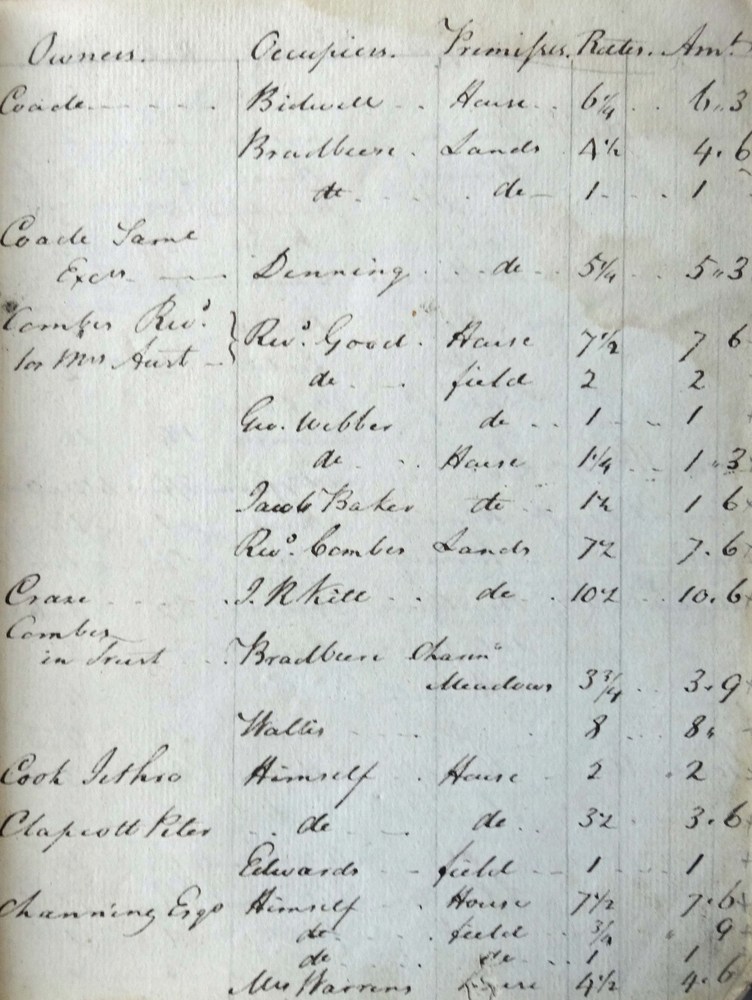 Owners. Occupiers. Premises. Rates. Amt
Coade Bidwell House 6 1/4 6 „ 3
Bradbeere Lands 4 1/2 4 . 6
do do 1 1
Coade Saml
Excrs Denning do 5 1/4 5 „ 3
Comber Revd.
for Mrs Aust Revd. Good House 7 1/2 7 6
do field 2 2
Geo. Webber do 1 1
do House 1 1/4 1 „ 3
Jacob Baker do 1 1/2 1 6
Revd. Comber Lands 7 1/2 7 . 6
Craze J. R Kill do 10 1/2 10 . 6
Comber
in Trust Bradbeere
Meadows 3 3/4 3 . 9
Wallis 8 8 „
Cook Jethro Himself House 2 2
Clapcott Peter do do 3 1/2 3 . 6
Edwards field 1 1
Channing Esqr Himself House 7 1/2 7 . 6
do field 3/4 9
do do 1 1
Mrs Warrens 4 1/2 4 . 6